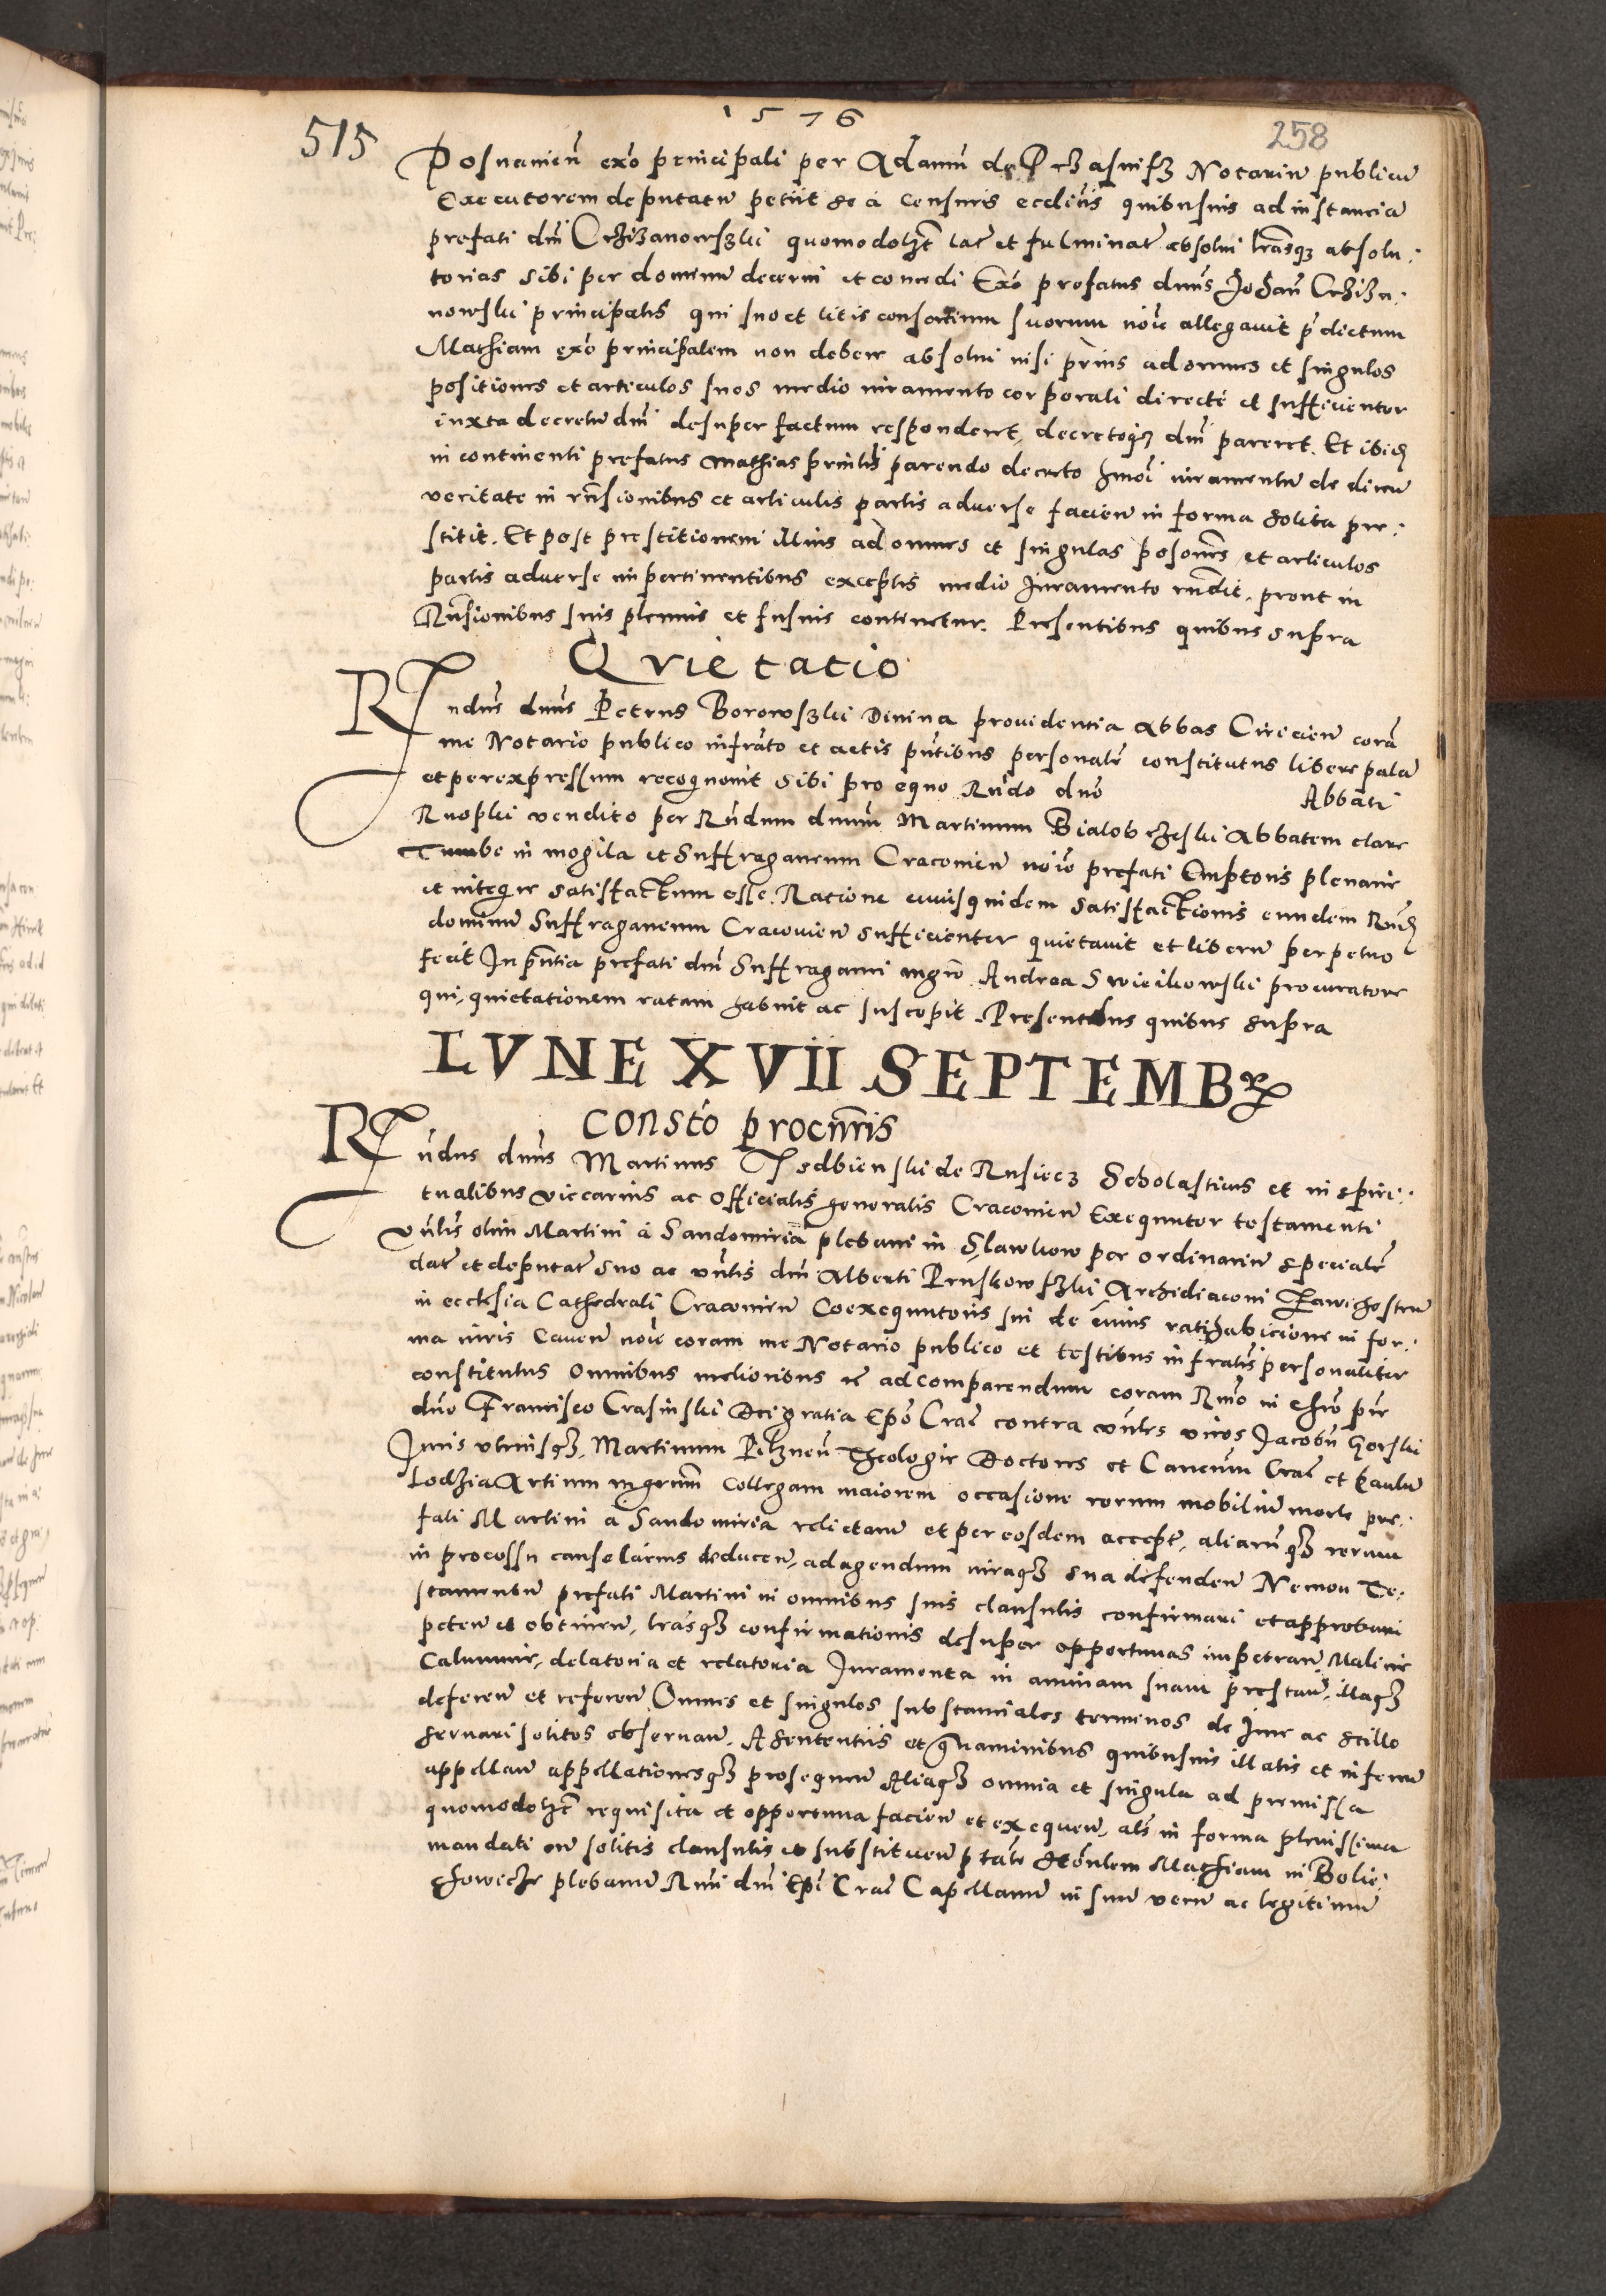 1576
515
258
Posnanien̄ exō principali per Adamū de Przasnisz Notariū publicū
Executorem deputatū petiit se a censuris ecclīis quibusvis ad instanciā
prefati dnī Crzizanowszki quomodolz̄t lat̄ et fulminat̄ absolvi lrāsqȝ absolu:
torias sibi per dominū decerni et concedi Exō prefatus dnūs Johan̄ Crziza:
nowski principalis qui suo et litis consortium suorum noīe allegavit p̄dictum
Mathiam exō principalem non debere absolvi nisi prius ad omnes et singulos
positiones et articulos suos medio iuramento corporali directe et sufficienter
iuxta decretū dnī desuper factum responderet, decretoqȝ dnī pareret. Et ibid
in continenti prefatus Mathias prin̄lis parendo decreto hmōi iuramentū de dicen̄
veritate in rn̄sionibus et articulis partis adverse facien̄ in forma solita pre:
stitit. Et post prestitionem illius ad omnes et singulas posones et articulos
partis adverse impertinentibus exceptis medio Juramento rn̄dit. prout in
Rn̄sionibus suis plenius et fusius continetur. Presentibus quibus supra
Qvietatio
Rn̄dus dnūs Petrus Borowszki Divina providentia Abbas Ciricien̄ corā
me Notario publico infratō et actis pn̄tibus personalr̄ constitutus libere palā
et per expressum recognovit sibi pro equo Rn̄do dnō Abbati
Ruopki vendito per Rn̄dum dnūm Martinum Bialobrzeski Abbatem clare
Tumbe in mogila et Suffraganeum Cracovien̄ noīe prefati Emptoris plenarie
et integre satisfactum esse. Ratione cuiusquidem satisfactionis eundem Rn̄d
dominū Suffraganeum Cracovien̄ sufficienter quietavit et liberū perpetuo
fecit In pn̄tia prefati dnī Suffraganei mgrō Andrea Swieikowski procuratore
qui, quietationem ratam habuit ac suscepit. Presentibus quibus supra
LVNE XVII SEPTEMBR
Constō procur̄is
Rn̄dus dnūs Martinus Isdbienski de Rusiecz Scholasticus et in spiri:
tualibus viccarius ac Officialis generalis Cracovien̄ Exequutor testamenti
vn̄lis olim Martini a Sandomiria plebani in Slawkow per ordinariū specialr̄
dat̄ et deputat̄ suo ac vn̄lis dnī Alberti Pruskowszki Archidiaconi Zawichosten̄
in ecclesia Cathedrali Cracovien̄ Coexequutoris sui de cuius ratihabicione in for:
ma iuris caven̄ noīe coram me Notario publico et testibus infratīs personaliter
constitutus Omnibus melioribus etc ad comparendum coram Rmō in chrō prē
dnō Francisco Crasinski Dei gratia Epō Crac̄ contra vn̄les viros Jacobū Gorski
Juris utriusqȝ, Martinum Pilznen̄ Theologie Doctores et Can̄cum Crac̄ et Paulū
Lodzia Artium mgrum Collegam maiorem occasione rerum mobiliū morte pre:
fati Martini a Sandomiria relictarū et per eosdem accept̄, aliarūqȝ rerum
in processu cause larius deducen̄, ad agendum iuraqȝ sua defenden̄ Necnon Te:
stamentū prefati Martini in omnibus suis clausulis confirmari et approbari
peten̄ et obtinen̄, lrāsqȝ confirmationis desuper opportunas impetran̄ Malicie
Calumnie, delatoria et relatoria Juramenta in animam suam prestan̄, illaqȝ
deferen̄ et referen̄ Omnes et singulos substanciales terminos de Jure ac stillo
servari solitos observan̄. A sententiis et gravaminibus quibusvis illatis et inferen̄
appellan̄ appellationesqȝ prosequen̄ Aliaqȝ omnia et singula ad premissa
quomodolz̄t requisita et opportuna facien̄ et exequen̄, als in forma plenissima
mandati cū solitis clausulis et substituen̄ p̄tate Hon̄lem Mathiam in Bolie
chowicze plebanū Rmī dnī Epī Crac̄ Capellanū in suū verū ac legitimū